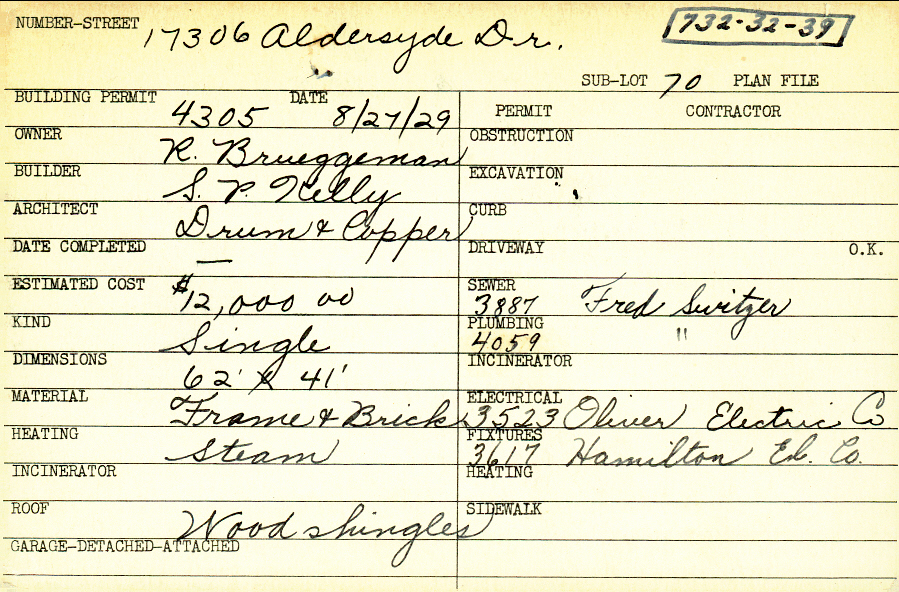 NUMBER-STREET 17306 Aldersyde Dr. 732-32-39
SUB-LOT 70 PLAN FILE
BUILDING PERMIT 4305 DATE 8/27/29
PERMIT CONTRACTOR
OWNER R. Brueggeman
OBSTRUCTION
BUILDER S. P. Kelly
EXCAVATION
ARCHITECT Drum & Copper
CURB
DATE COMPLETED —
DRIVEWAY O.K.
ESTIMATED COST $12,000 00
SEWER 3887 Fred Switzer
KIND Single
PLUMBING 4059 "
DIMENSIONS 62' x 41'
INCINERATOR
MATERIAL Frame & Brick
ELECTRICAL 3523 Oliver Electric Co
HEATING Steam
FIXTURES 3617 Hamilton El. Co.
INCINERATOR
HEATING
ROOF Wood shingles
SIDEWALK
GARAGE-DETACHED-ATTACHED